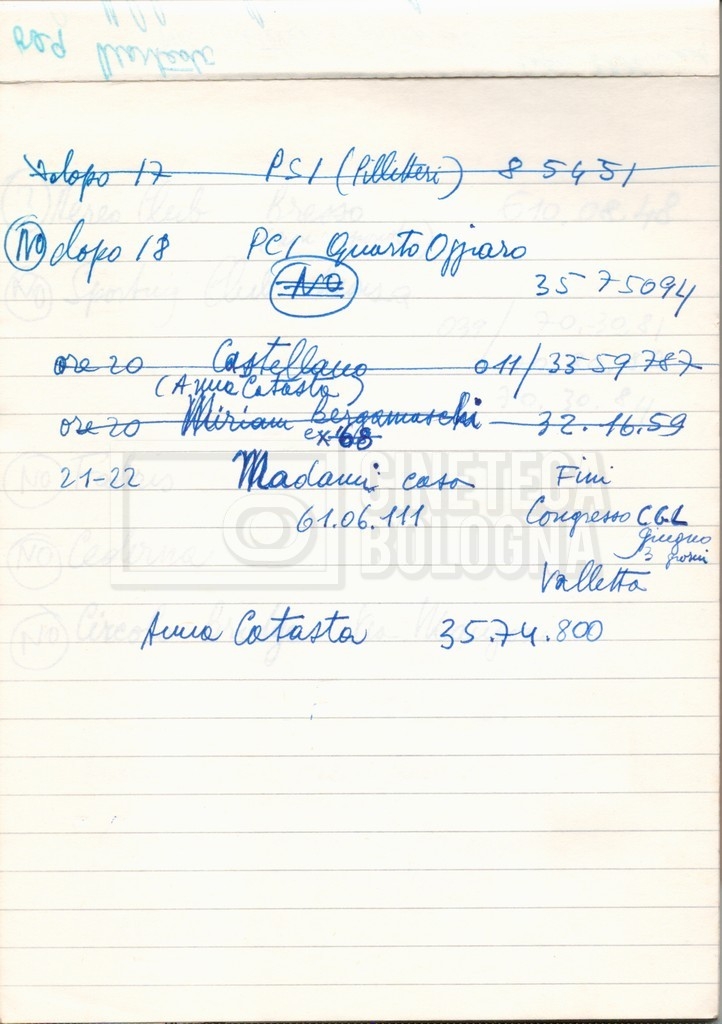 dopo 17 PSI (Pillitteri) 85451
No dopo 18 PCI Quarto Oggiaro
No 3575094
ore 20 Castellano 011/3359787
(Anna Catasta)
ore 20 Miriam Bergamaschi 32.16.59
ex '68
21-22 Madami: casa Fini
61.06.111 Congresso CGL
giugno
3 giorni
Valletta
Anna Catasta 35.74.800
CINETECA
BOLOGNA